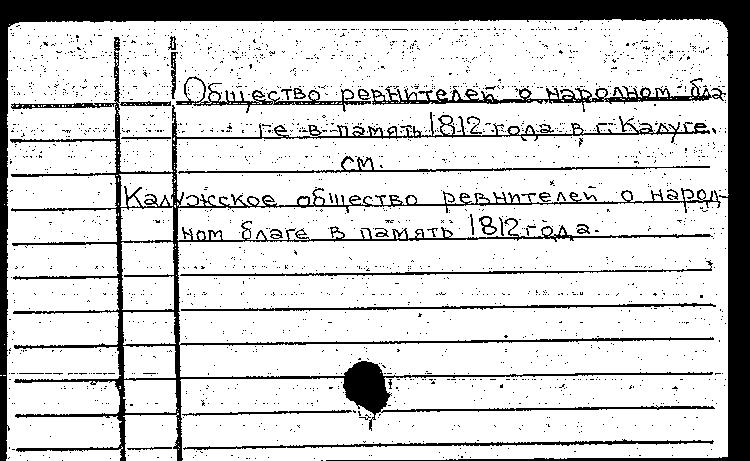 Общество ревнителей о народном бла-
ге в память 1812 года в г. Калуге.
см.
Калужское общество ревнителей о народ-
ном благе в память 1812 года.